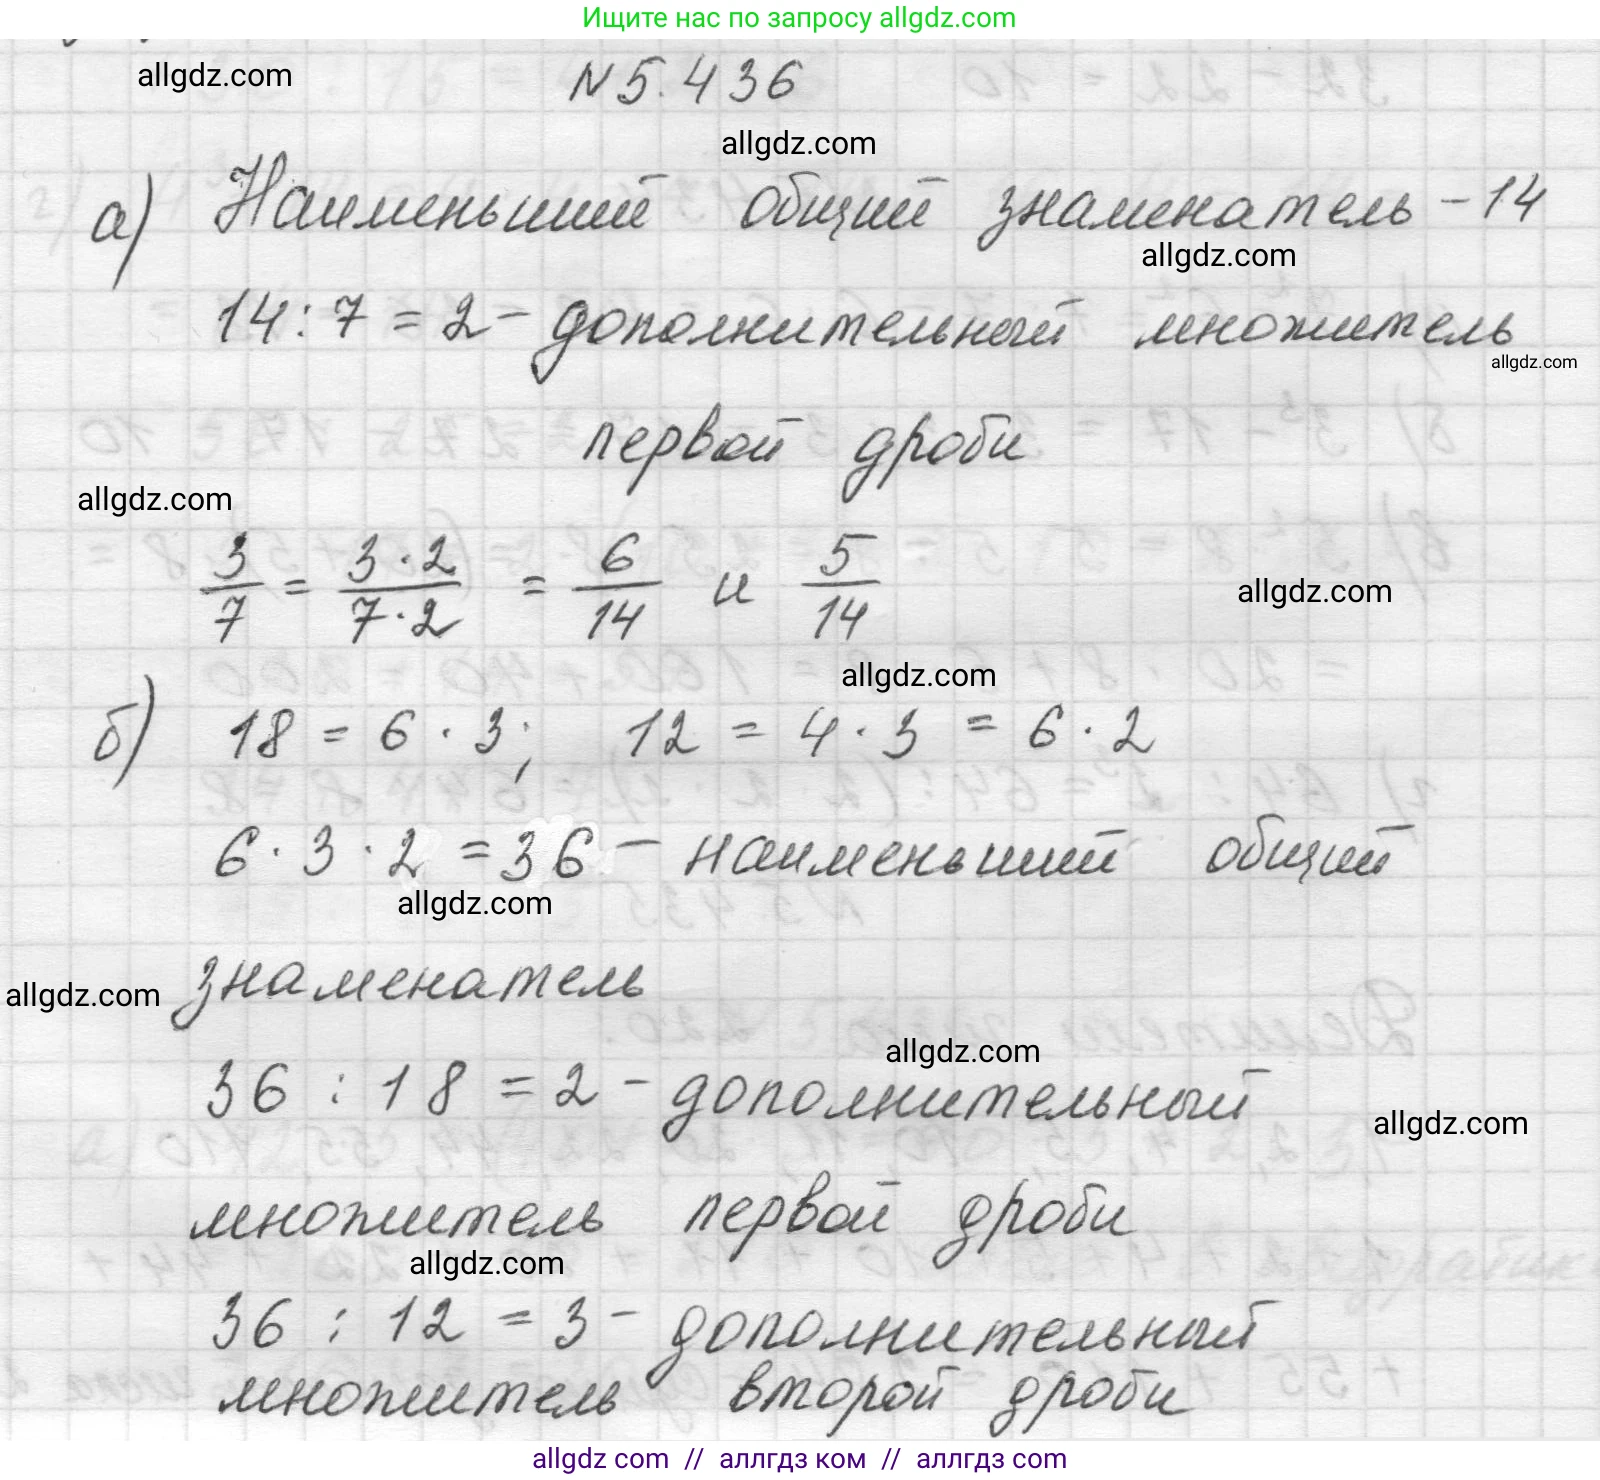 Ищите нас по запросу allgdz.com
allgdz.com
N 5.436
allgdz.com
а) Наименьший общий знаменатель - 14
allgdz.com
14 : 7 = 2 - дополнительный множитель
allgdz.com
первой дроби
allgdz.com
3/7 = 3·2/7·2 = 6/14 и 5/14
allgdz.com
allgdz.com
б) 18 = 6 · 3; 12 = 4 · 3 = 6 · 2
6 · 3 · 2 = 36 - наименьший общий
allgdz.com
знаменатель
allgdz.com
allgdz.com
36 : 18 = 2 - дополнительный
allgdz.com
множитель первой дроби
allgdz.com
36 : 12 = 3 - дополнительный
множитель второй дроби
allgdz.com // аллгдз ком // аллгдз.com